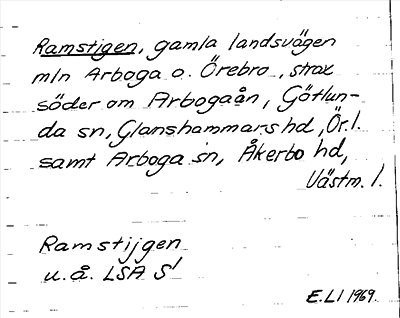 Ramstigen, gamla landsvägen
mln Arboga o. Örebro, strax
söder om Arbogaån, Götlun-
da sn, Glanshammars hd, Ör. l.
samt Arboga sn, Åkerbo hd,
Västm. l.
Ramstijgen
u.å. LSA S1
E.LI 1969.